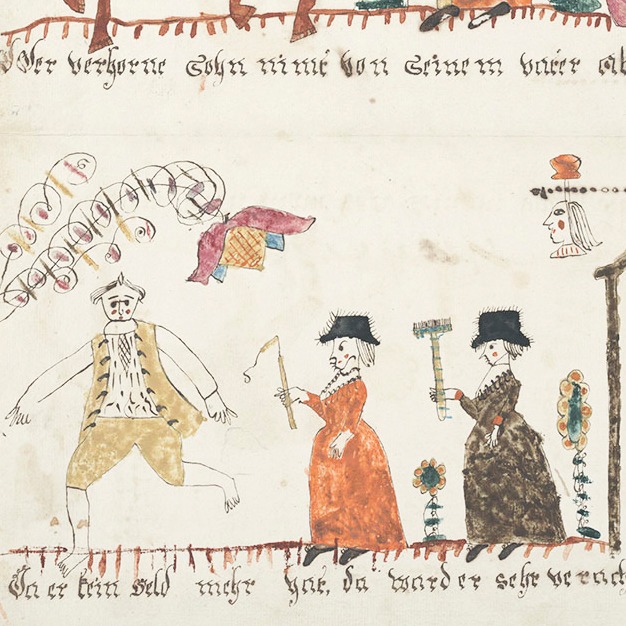 Der verhorne Sohn nimt von Seinem vater ab
Da er kein Geld mehr hat, da ward er sehr verach